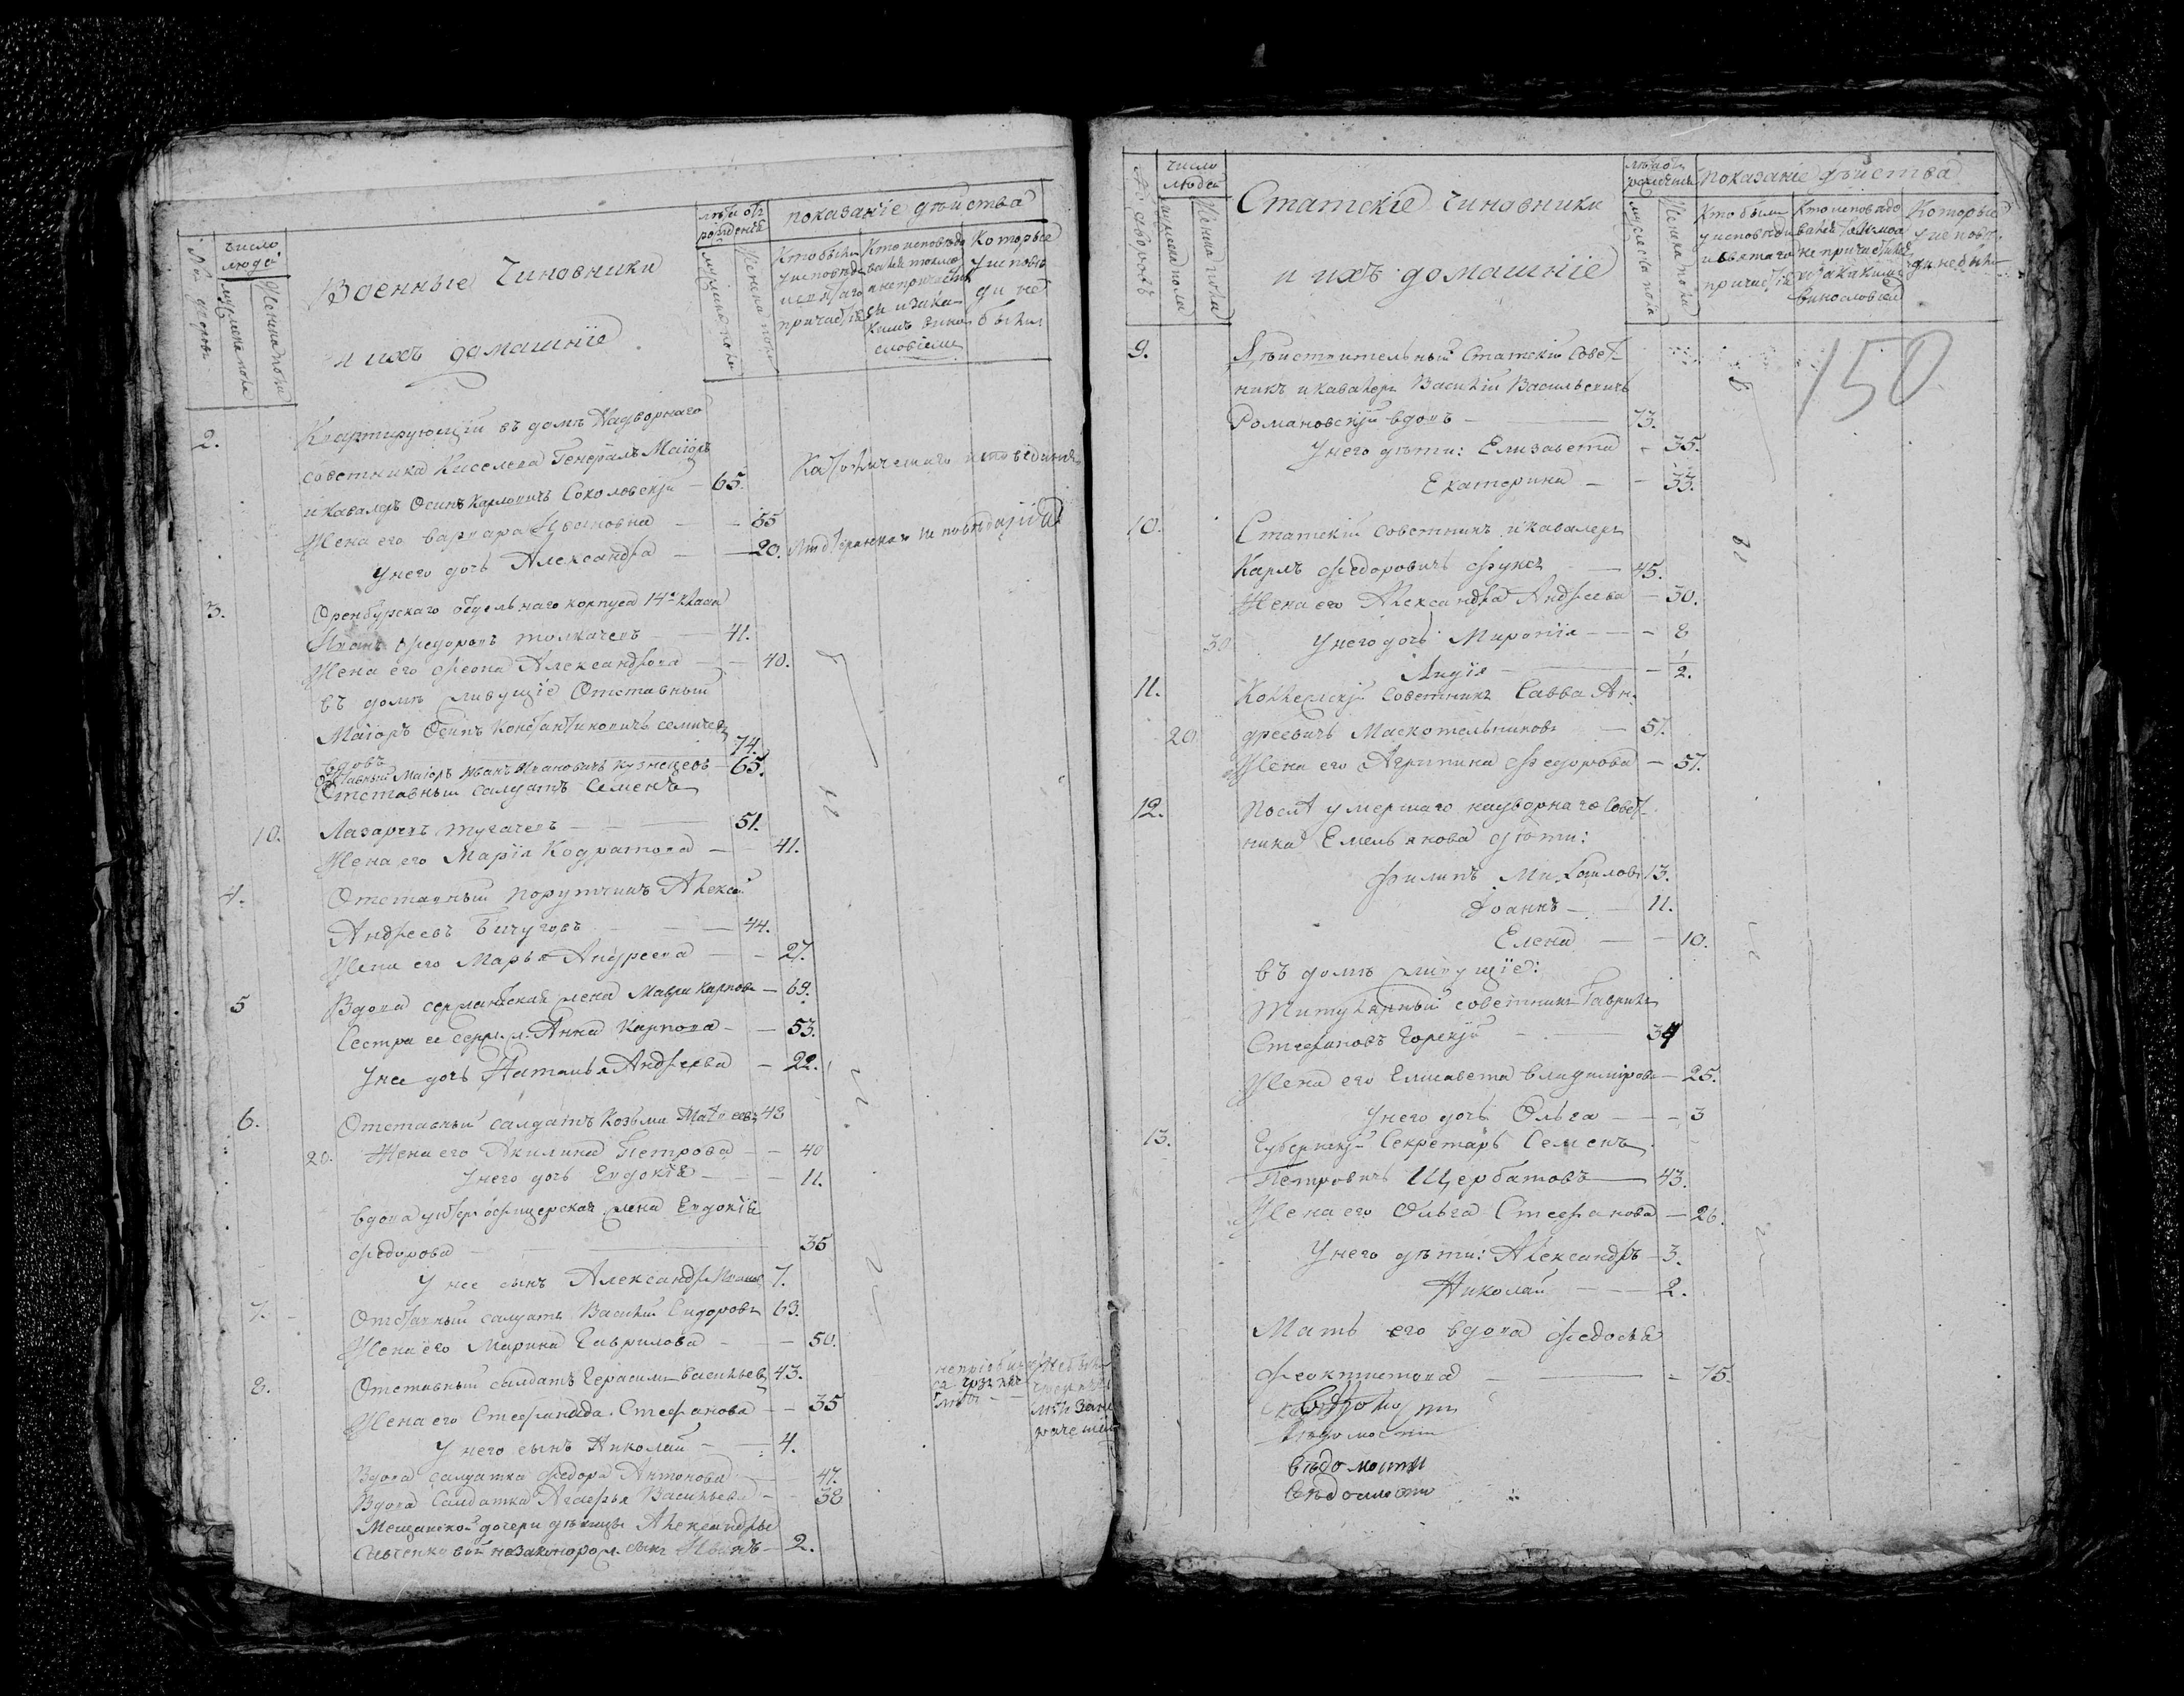 число
людей
Военные чиновники
и ихъ домашніе
лѣта отъ
рожденія
показаніе дѣйства
мужеска пола
женска пола
Кто были
у исповѣди
и святаго
причастія
Кто исповѣдо
вался токмо
а не причасти
ся и за ка
кимъ вино
словіемъ
Которые
у исповѣ
ди не
были
2.
Квартирующій въ домѣ Надворнаго
советника Киселева Генералъ Маіоръ
и кавалеръ Осипъ Карловичъ Соколовскій — 65.
Католическаго исповеданія
Жена его Варвара — 55
у него дочь Александра — 20.
3.
Оренбургскаго отдельнаго корпуса 14го класа
Иванъ Федоровъ Толкачевъ — 41.
Жена его Феона Александрова — 40.
въ домѣ живущіе Отставный
Маіоръ Осипъ Константиновичъ
вдовъ 74.
Отставный Маіоръ Иванъ Ивановичъ Кузнецовъ — 65.
Отставный салдатъ Семенъ
10. Лазаревъ Тугачевъ — 51.
Жена его Марія Кодратова — 41.
4.
Отставный порутчикъ Алексей
Андреевъ Бичуговъ — 44.
Жена его Марья Андреева — 27.
5
Вдова сержантская жена Мавра Карпова — 69.
Сестра ее Анна Карпова — 53.
У нее дочь Наталья Андреева — 22.
6.
Отставный салдатъ Козьма Матвеевъ 48
20. Жена его Акилина Петрова — 40
У него дочь Евдокія — 11.
вдова унтеръ офицерская жена Евдокія
Федорова — 35
У нее сынъ Александръ 7.
7.
Отставный салдатъ Василій Сидоровъ 63.
Жена его Марина Гаврилова — 50.
8.
Отставный салдатъ Герасимъ Васильевъ 43.
Жена его Стефанида Стефанова — 35
У него сынъ Николай — 4.
Вдова салдатка Федора Антонова — 47.
Вдова Салдатка Агафья Васильева — 38
Мещанской дочери девицы Александры
незаконорож. сынъ Иванъ — 2.
число
людей
Статскіе чиновники
и ихъ домашніе
лѣта отъ
рожденія
показаніе дѣйства
мужеска пола
женска пола
Кто были
у исповѣди
и святаго
причастія
Кто исповѣдо
вался токмо а
не причастился
и за какимъ
винословіемъ
Которые
у исповѣ
ди не были
150
9.
Дѣйствительный Статскій Совет
никъ и кавалеръ Василій Васильевичъ
Романовскій вдовъ — 73.
У него дѣти: Елизавета — 35.
Екатерина — 33.
10.
Статскій советникъ и кавалеръ
Карлъ Федоровичъ Фуксъ — 45.
Жена его Александра Андреева — 30.
30 У него дочь — 8
Лидія — 1/2.
11.
Коллежскій советникъ Савва Ан
20 дреевичъ Москотельниковъ — 57.
Жена его Агрипина Федорова — 57.
12.
После умершаго надворнаго Совет
ника Емельянова дѣти:
Филипъ Михаиловъ 13.
Іоаннъ — 11.
Елена — 10.
въ домѣ живущіе:
Титулярный советникъ Гаврилъ
Стефановъ Горскій — 34
Жена его Елисавета Владимірова — 25.
У него дочь Ольга — 3
13.
Губернскій Секретарь Семенъ
Петровичъ Щербатовъ — 43.
Жена его Ольга Стефанова — 26.
У него дѣти: Александръ — 3.
Николай — 2.
Мать его вдова Федосья
Феоктистова — 75.
вѣдомости
вѣдомости